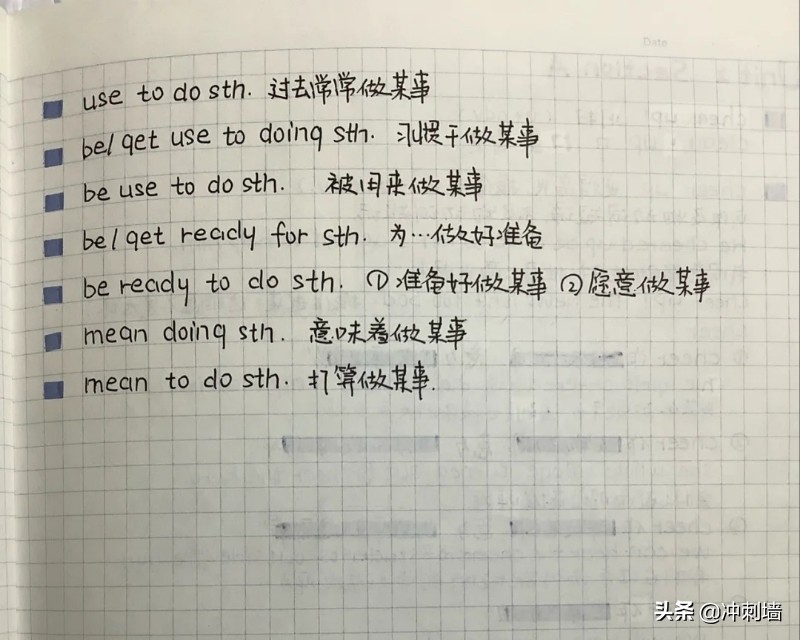 Date
use to do sth. 过去常常做某事
be/get use to doing sth. 习惯于做某事
be use to do sth. 被用来做某事
be/get ready for sth. 为…做好准备
be ready to do sth. ①准备好做某事 ②愿意做某事
mean doing sth. 意味着做某事
mean to do sth. 打算做某事.
头条 @冲刺墙